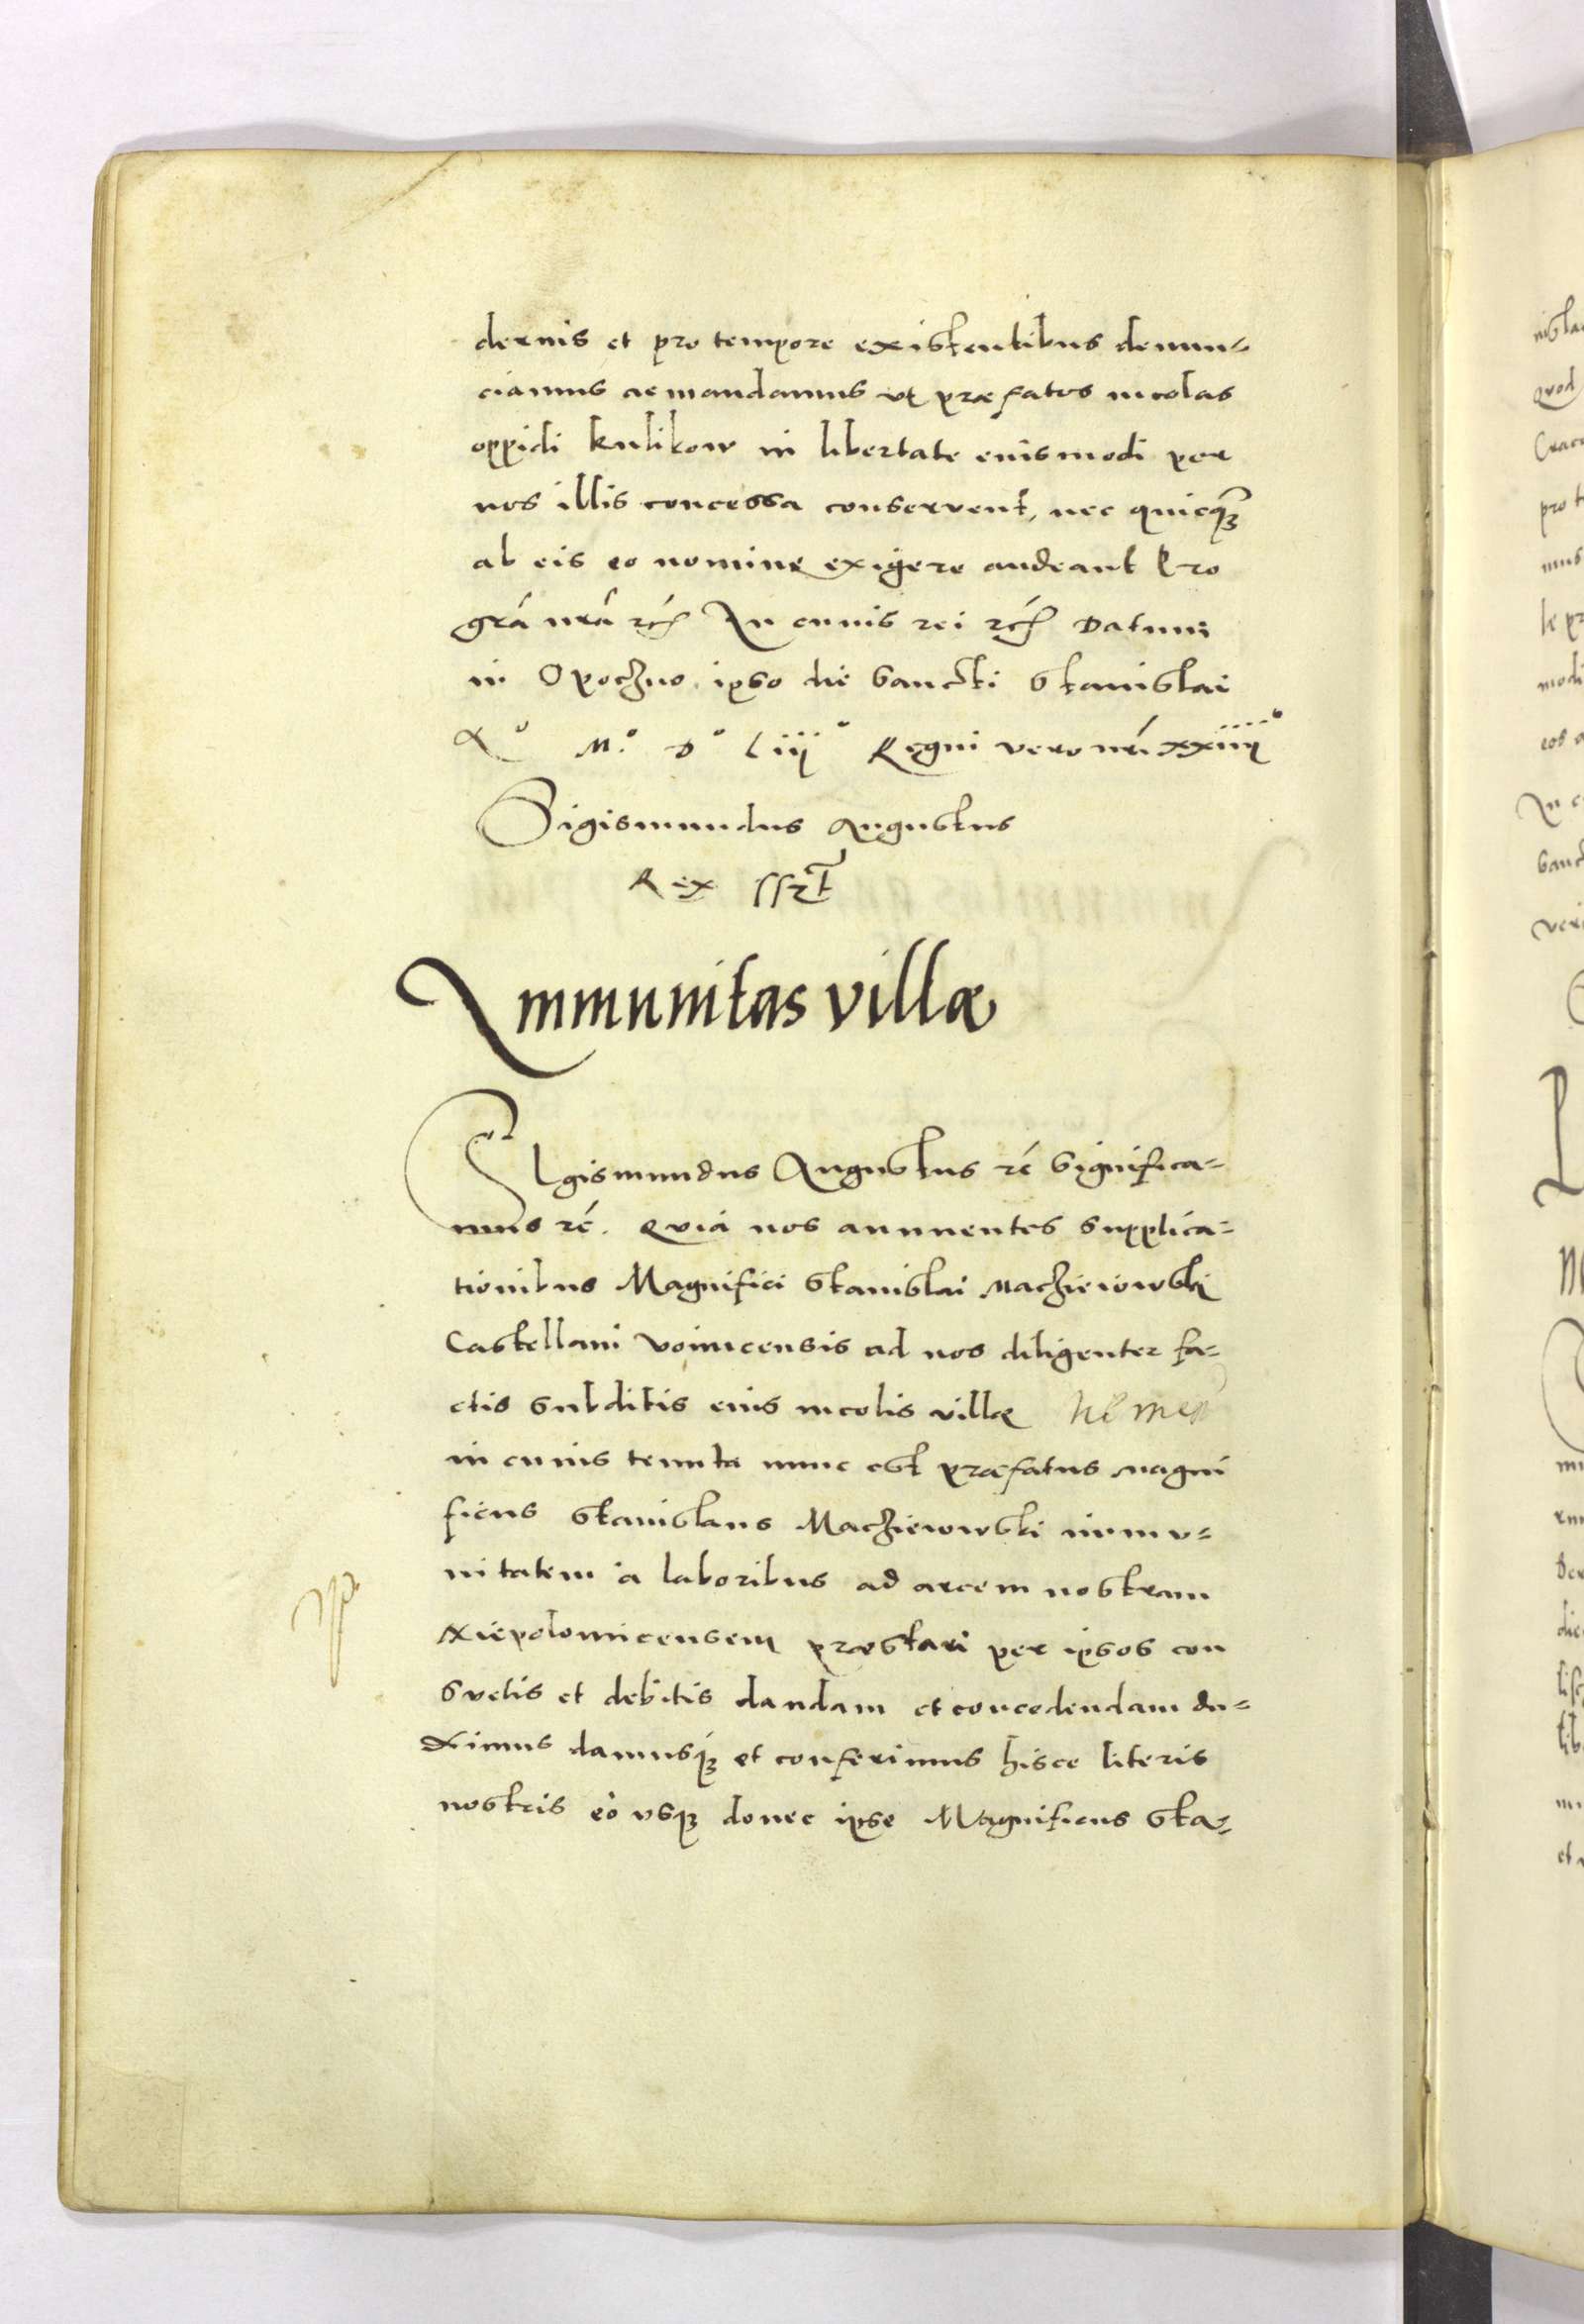 dernis et pro tempore existentibus denun-
ciamus ac mandamus ut præfatos incolas
oppidi Kulikow in libertate eiusmodi per
nos illis concessa conservent, nec quicq3
ab eis eo nomine exigere audeant Pro
grã nrã etc In cuius rei etc Datum
in Opoczno ipso die Sancti Stanislai
Aº Mº Dº Liiiº Regni vero nri xxiiiiº
Sigismundus Augustus
Rex sszt
Immunitas villæ
SIgismundus Augustus rē Significa-
mus rē. Quia nos annuentes supplica-
tionibus Magnifici Stanislai Macziejowski
Castellani Voinicensis ad nos diligenter fa-
ctis Subditis eius incolis villæ
in cuius tenuta nunc est præfatus magni
ficus Stanislaus Macziejowski immu-
nitatem à laboribus ad arcem nostram
Niepolomicensem præstari per ipsos con
suetis et debitis dandam et concedendam du-
ximus damusq3 et conferimus hisce literis
nostris eò usq3 donec ipse Magnificus Sta-